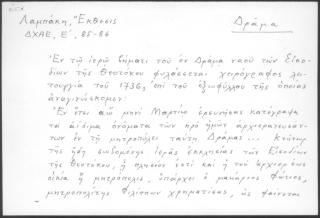 Λαμπάκη, Ἔκθεσις
ΔΧΑΕ, Ε΄, 85-86
Δράμα
Ἐν τῷ ἱερῷ βήματι τοῦ ἐν Δράμᾳ ναοῦ τῶν Εἰσο-
δίων τῆς Θεοτόκου φυλάσσεται χειρόγραφος λει-
τουργία τοῦ 1736, ἐπὶ τοῦ ἐξωφύλλου τῆς ὁποίας
ἀναγινώσκομεν:
Ἐν ἔτει αωῷ μηνὶ Μαρτίῳ ἐρευνήσας κατέγραψα
τὰ ἀΐδιμα ὀνόματα τῶν πρὸ ἡμῶν ἀρχιερατευσάν-
των ἐν τῇ μητροπόλει ταύτῃ Δράμας ...
τῆς ἤδη σωζομένης ἱερᾶς ἐκκλησίας τῶν Εἰσοδίων
τῆς Θεοτόκου, ἧ πλησίον ἐστὶ καὶ ἡ τοῦ ἀρχιερέως
οἰκία ἢ μητρόπολις, ὑπάρχει ὁ μακάριος Φώτιος,
μητροπολίτης Φιλίππων χρηματίσας, ὡς φαίνεται